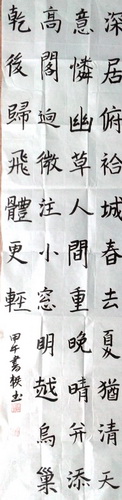 深居俯袷城春去夏猶清天
意憐幽草人間重晚晴并添
高閣迥微注小窗明越鳥巢
乾後歸飛體更輕
甲午書